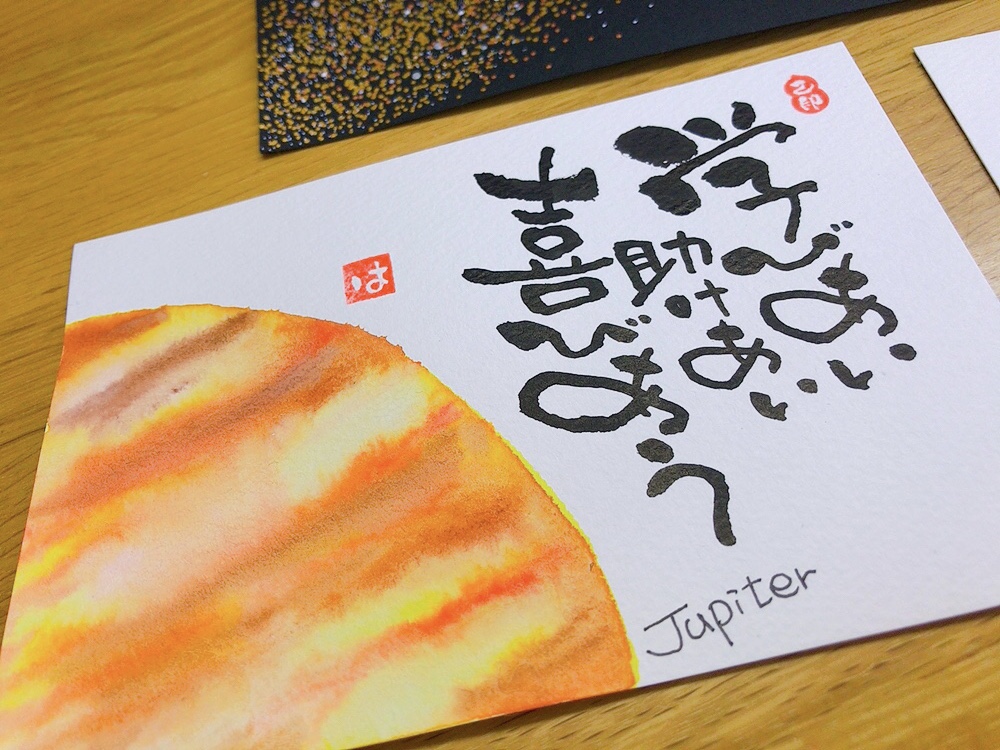 学びあい
助けあい
喜びあう
は
Jupiter